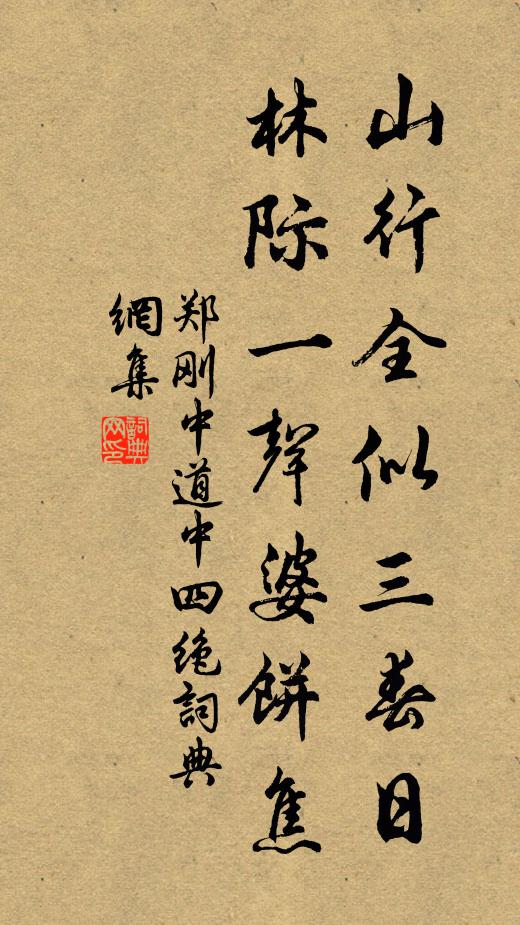 山行全似三春日
林际一聲婆餅焦
郑刚中道中四绝詞典
網集
詞典
网印